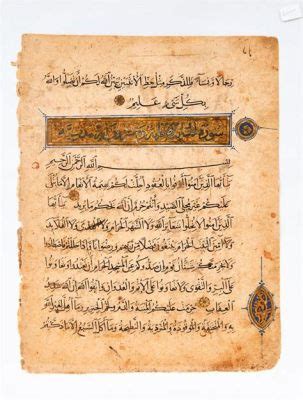 رجالا ونساء فللذكر مثل حظ الأنثيين يبين الله لكم أن تضلوا والله
بكل شيء عليم
سورة المائدة
بسم الله الرحمن الرحيم
يا أيها الذين آمنوا أوفوا بالعقود أحلت لكم بهيمة الأنعام إلا ما يتلى
عليكم غير محلي الصيد وأنتم حرم إن الله يحكم ما يريد يا أيها
الذين آمنوا لا تحلوا شعائر الله ولا الشهر الحرام ولا الهدي ولا القلائد
ولا آمين البيت الحرام يبتغون فضلا من ربهم ورضوانا وإذا حللتم فاصطادوا
ولا يجرمنكم شنآن قوم أن صدوكم عن المسجد الحرام أن تعتدوا وتعاونوا
على البر والتقوى ولا تعاونوا على الإثم والعدوان واتقوا الله إن الله شديد
العقاب حرمت عليكم الميتة والدم ولحم الخنزير وما أهل لغير الله
به والمنخنقة والموقوذة والمتردية والنطيحة وما أكل السبع إلا ما ذكيتم